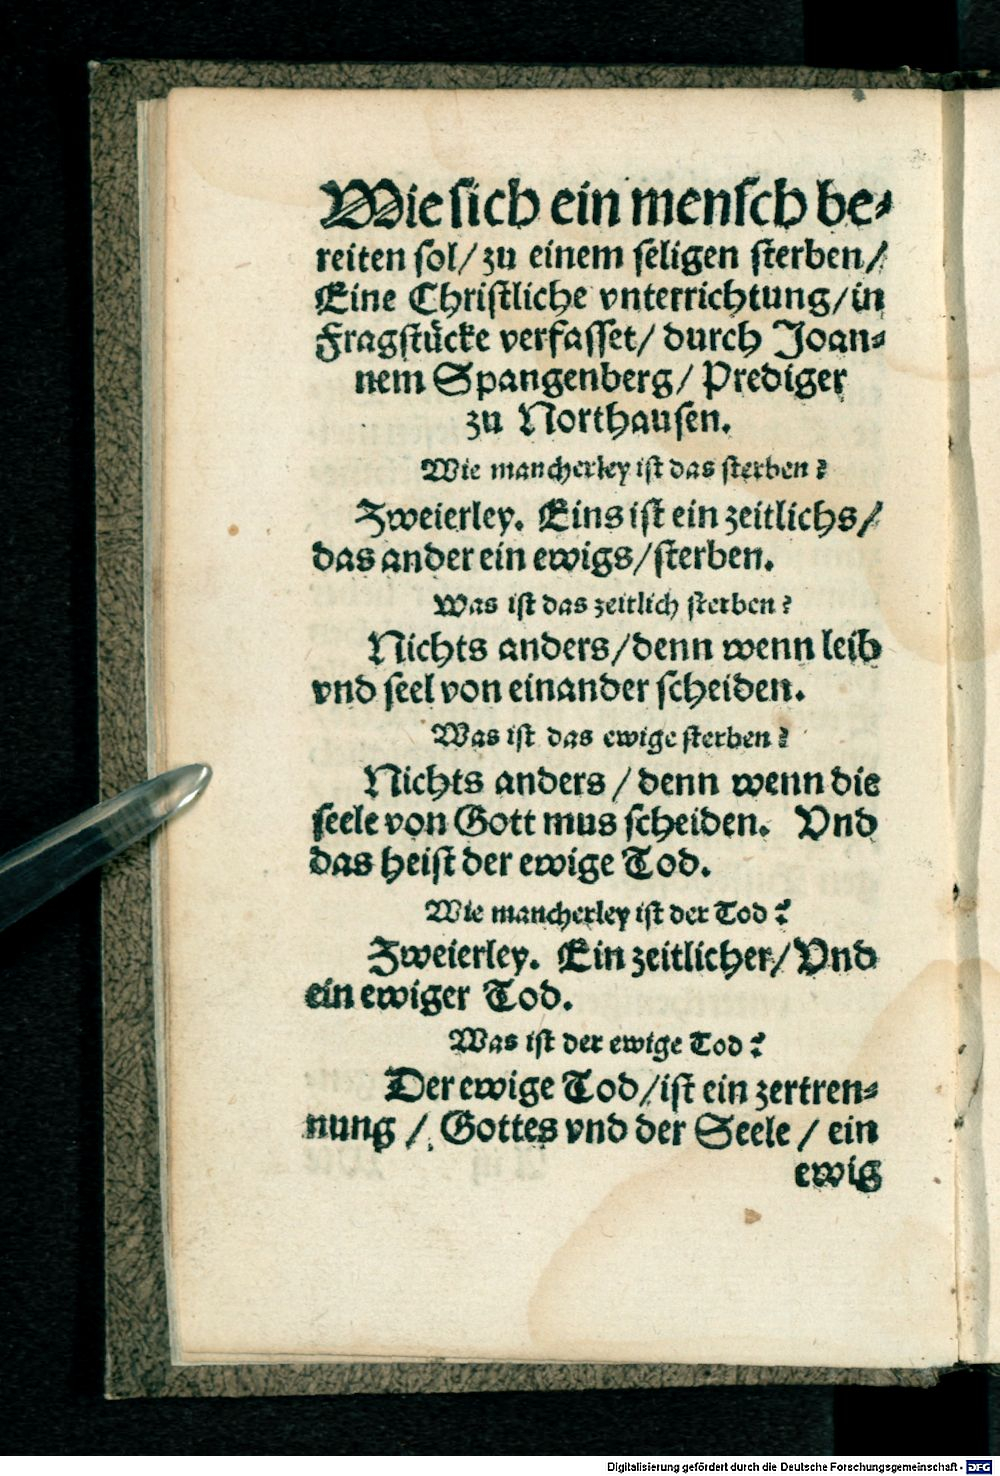 Wie ſich ein menſch be⸗
reiten ſol/ zu einem ſeligen ſterben/
Eine Chriſtliche vnterrichtung/ in
Fragſtücke verfaſſet/ durch Joan⸗
nem Spangenberg/ Prediger
zu Northauſen.
Wie mancherley iſt das ſterben?
Zweierley. Eins iſt ein zeitlichs/
das ander ein ewigs/ſterben.
Was iſt das zeitlich ſterben?
Nichts anders/denn wenn leib
vnd ſeel von einander ſcheiden.
Was iſt das ewige ſterben?
Nichts anders / denn wenn die
ſeele von Gott mus ſcheiden. Vnd
das heiſt der ewige Tod.
Wie mancherley iſt der Tod?
Zweierley. Ein zeitlicher/ Vnd
ein ewiger Tod.
Was iſt der ewige Tod?
Der ewige Tod/iſt ein zertren⸗
nung / Gottes vnd der Seele / ein
ewig
Digitalisierung gefördert durch die Deutsche Forschungsgemeinschaft - DFG